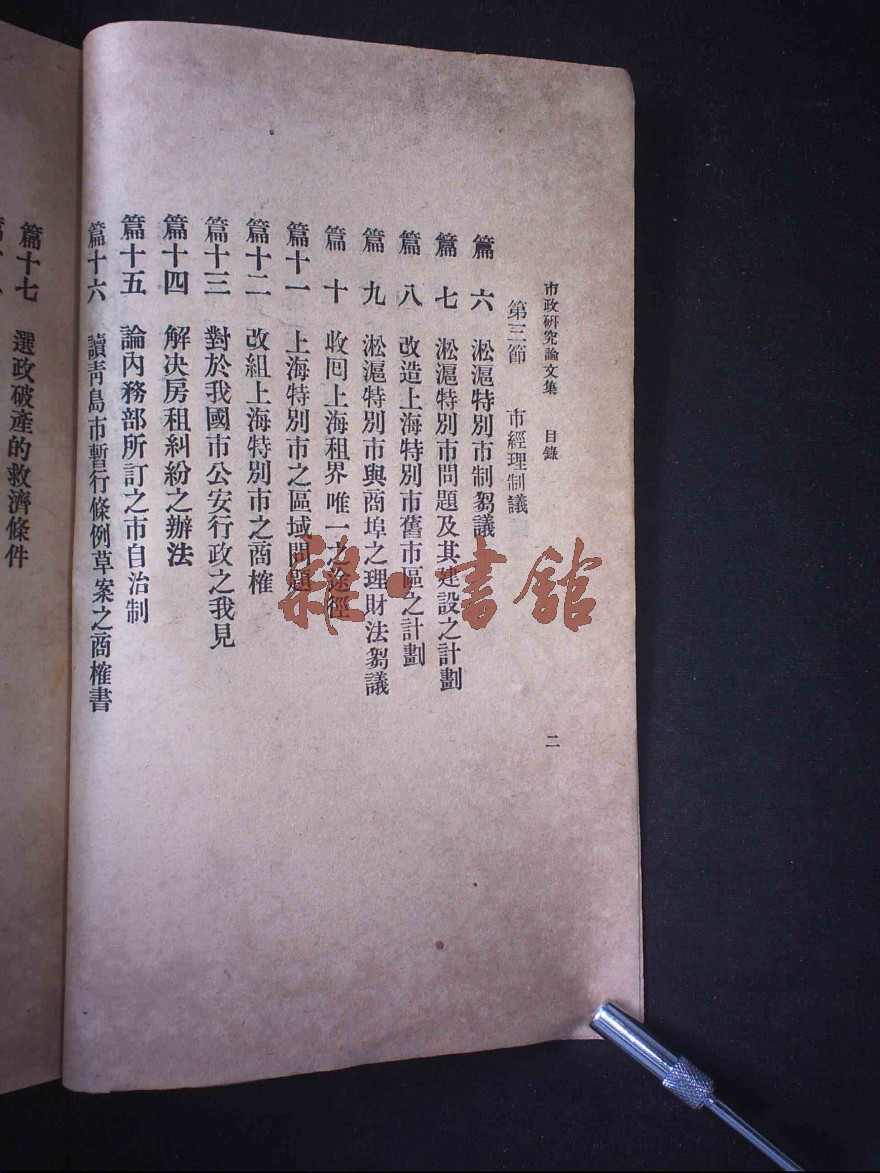 市政硏究論文集　目錄　二
第三節　市經理制議
篇　六　淞滬特別市制芻議
篇　七　淞滬特別市問題及其建設之計劃
篇　八　改造上海特別市舊市區之計劃
篇　九　淞滬特別市與商埠之理財法芻議
篇　十　收回上海租界唯一之途徑
篇十一　上海特別市之區域問題
篇十二　改組上海特別市之商榷
篇十三　對於我國市公安行政之我見
篇十四　解決房租糾紛之辦法
篇十五　論內務部所訂之市自治制
篇十六　讀靑島市暫行條例草案之商榷書
篇十七　選政破產的救濟條件
雜·書館